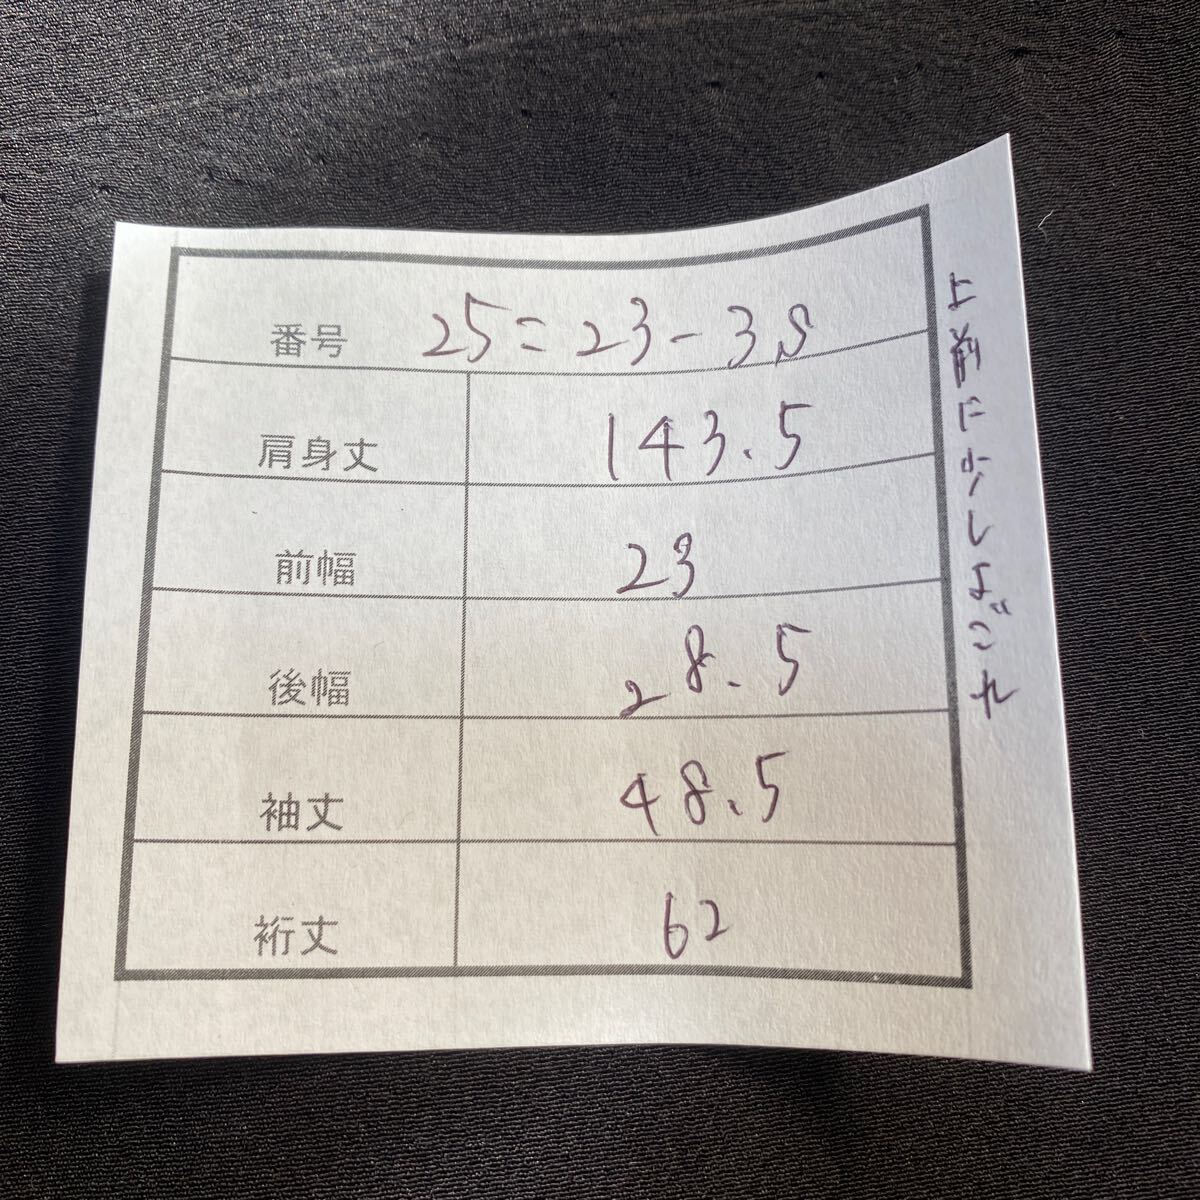 番号 25=23-38
肩身丈 143.5
前幅 23
後幅 28.5
袖丈 48.5
裄丈 62
上前に少しよごれ